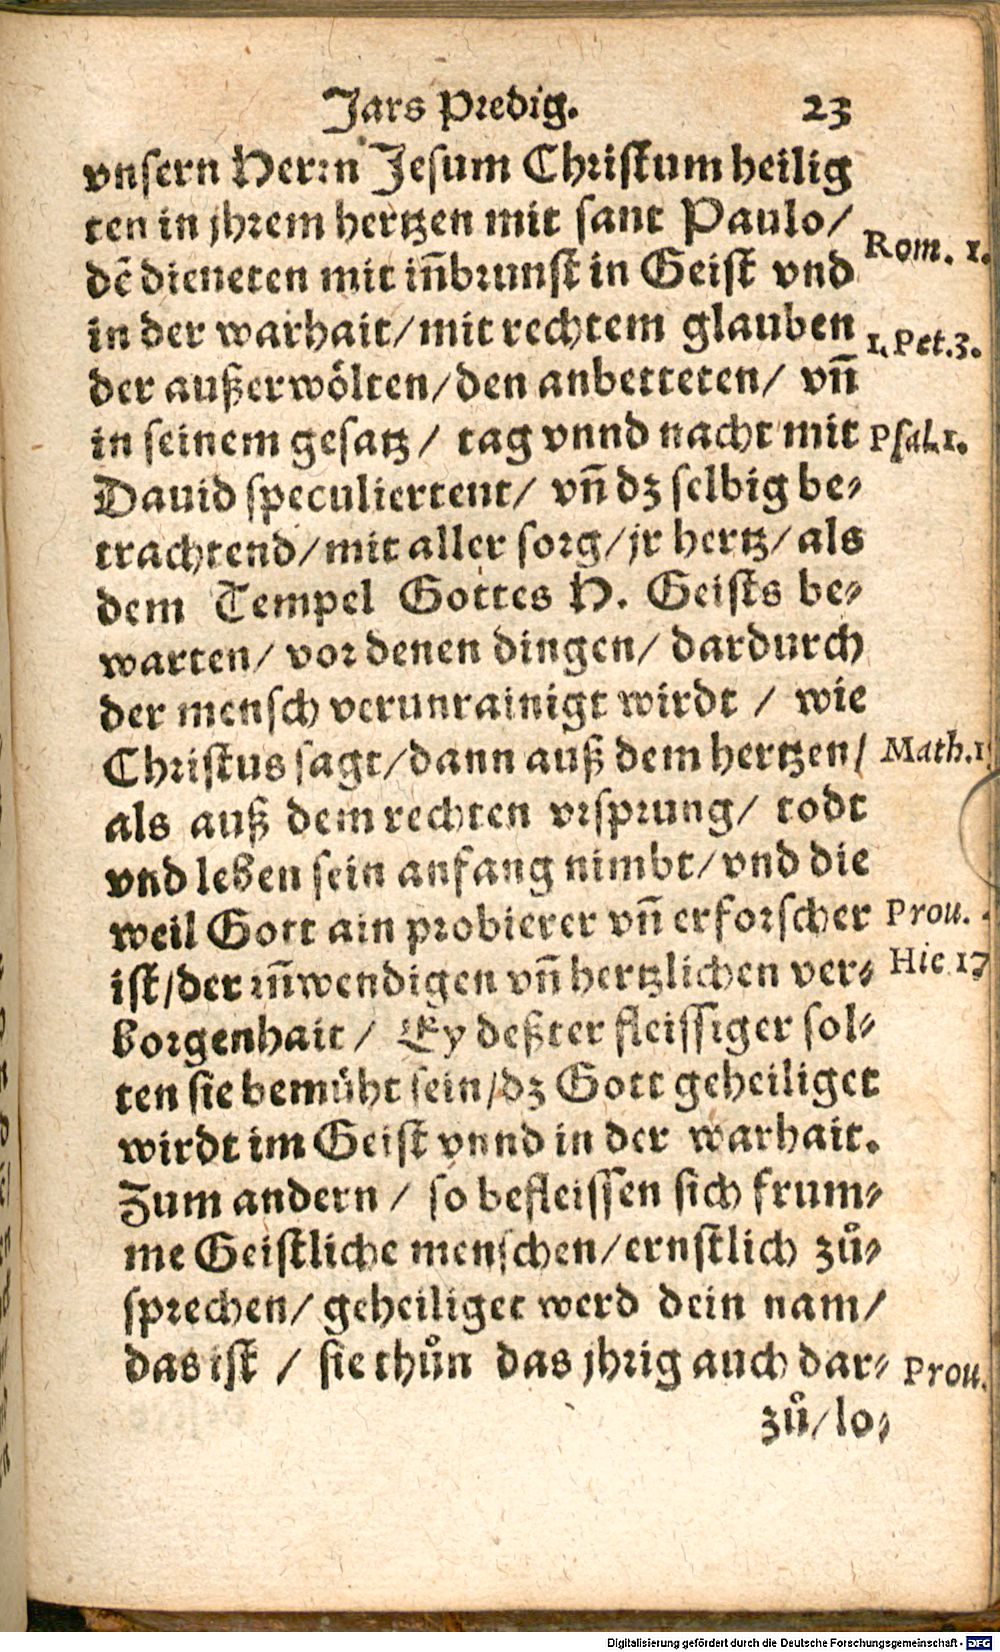 Jars Predig. 23
vnsern Herrn Jesum Christum heilig
ten in jhrem hertzen mit sant Paulo/
Rom. 1.
dē dieneten mit iñbrunst in Geist vnd
in der warhait/mit rechtem glauben
1. Pet. 3.
der außerwölten/den anbetteten/ vñ
in seinem gesatz/ tag vnnd nacht mit
Psal. 1.
Dauid speculiertent/ vñ dz selbig be-
trachtend/mit aller sorg/jr hertz/als
dem Tempel Gottes H. Geists be-
warten/ vor denen dingen/ dardurch
der mensch verunrainigt wirdt / wie
Christus sagt/dann auß dem hertzen/
Math.1
als auß dem rechten vrsprung/ todt
vnd leben sein anfang nimbt/vnd die
weil Gott ain probierer vñ erforscher
Prou.
ist/der iñwendigen vñ hertzlichen ver-
Hie 17
borgenhait/ Ey deßter fleissiger sol-
ten sie bemüht sein/dz Gott geheiliget
wirdt im Geist vnnd in der warhait.
Zum andern / so befleissen sich frum-
me Geistliche menschen/ernstlich zů-
sprechen/ geheiliget werd dein nam/
das ist / sie thůn das jhrig auch dar-
Prou.
zů/lo-
Digitalisierung gefördert durch die Deutsche Forschungsgemeinschaft - DFG